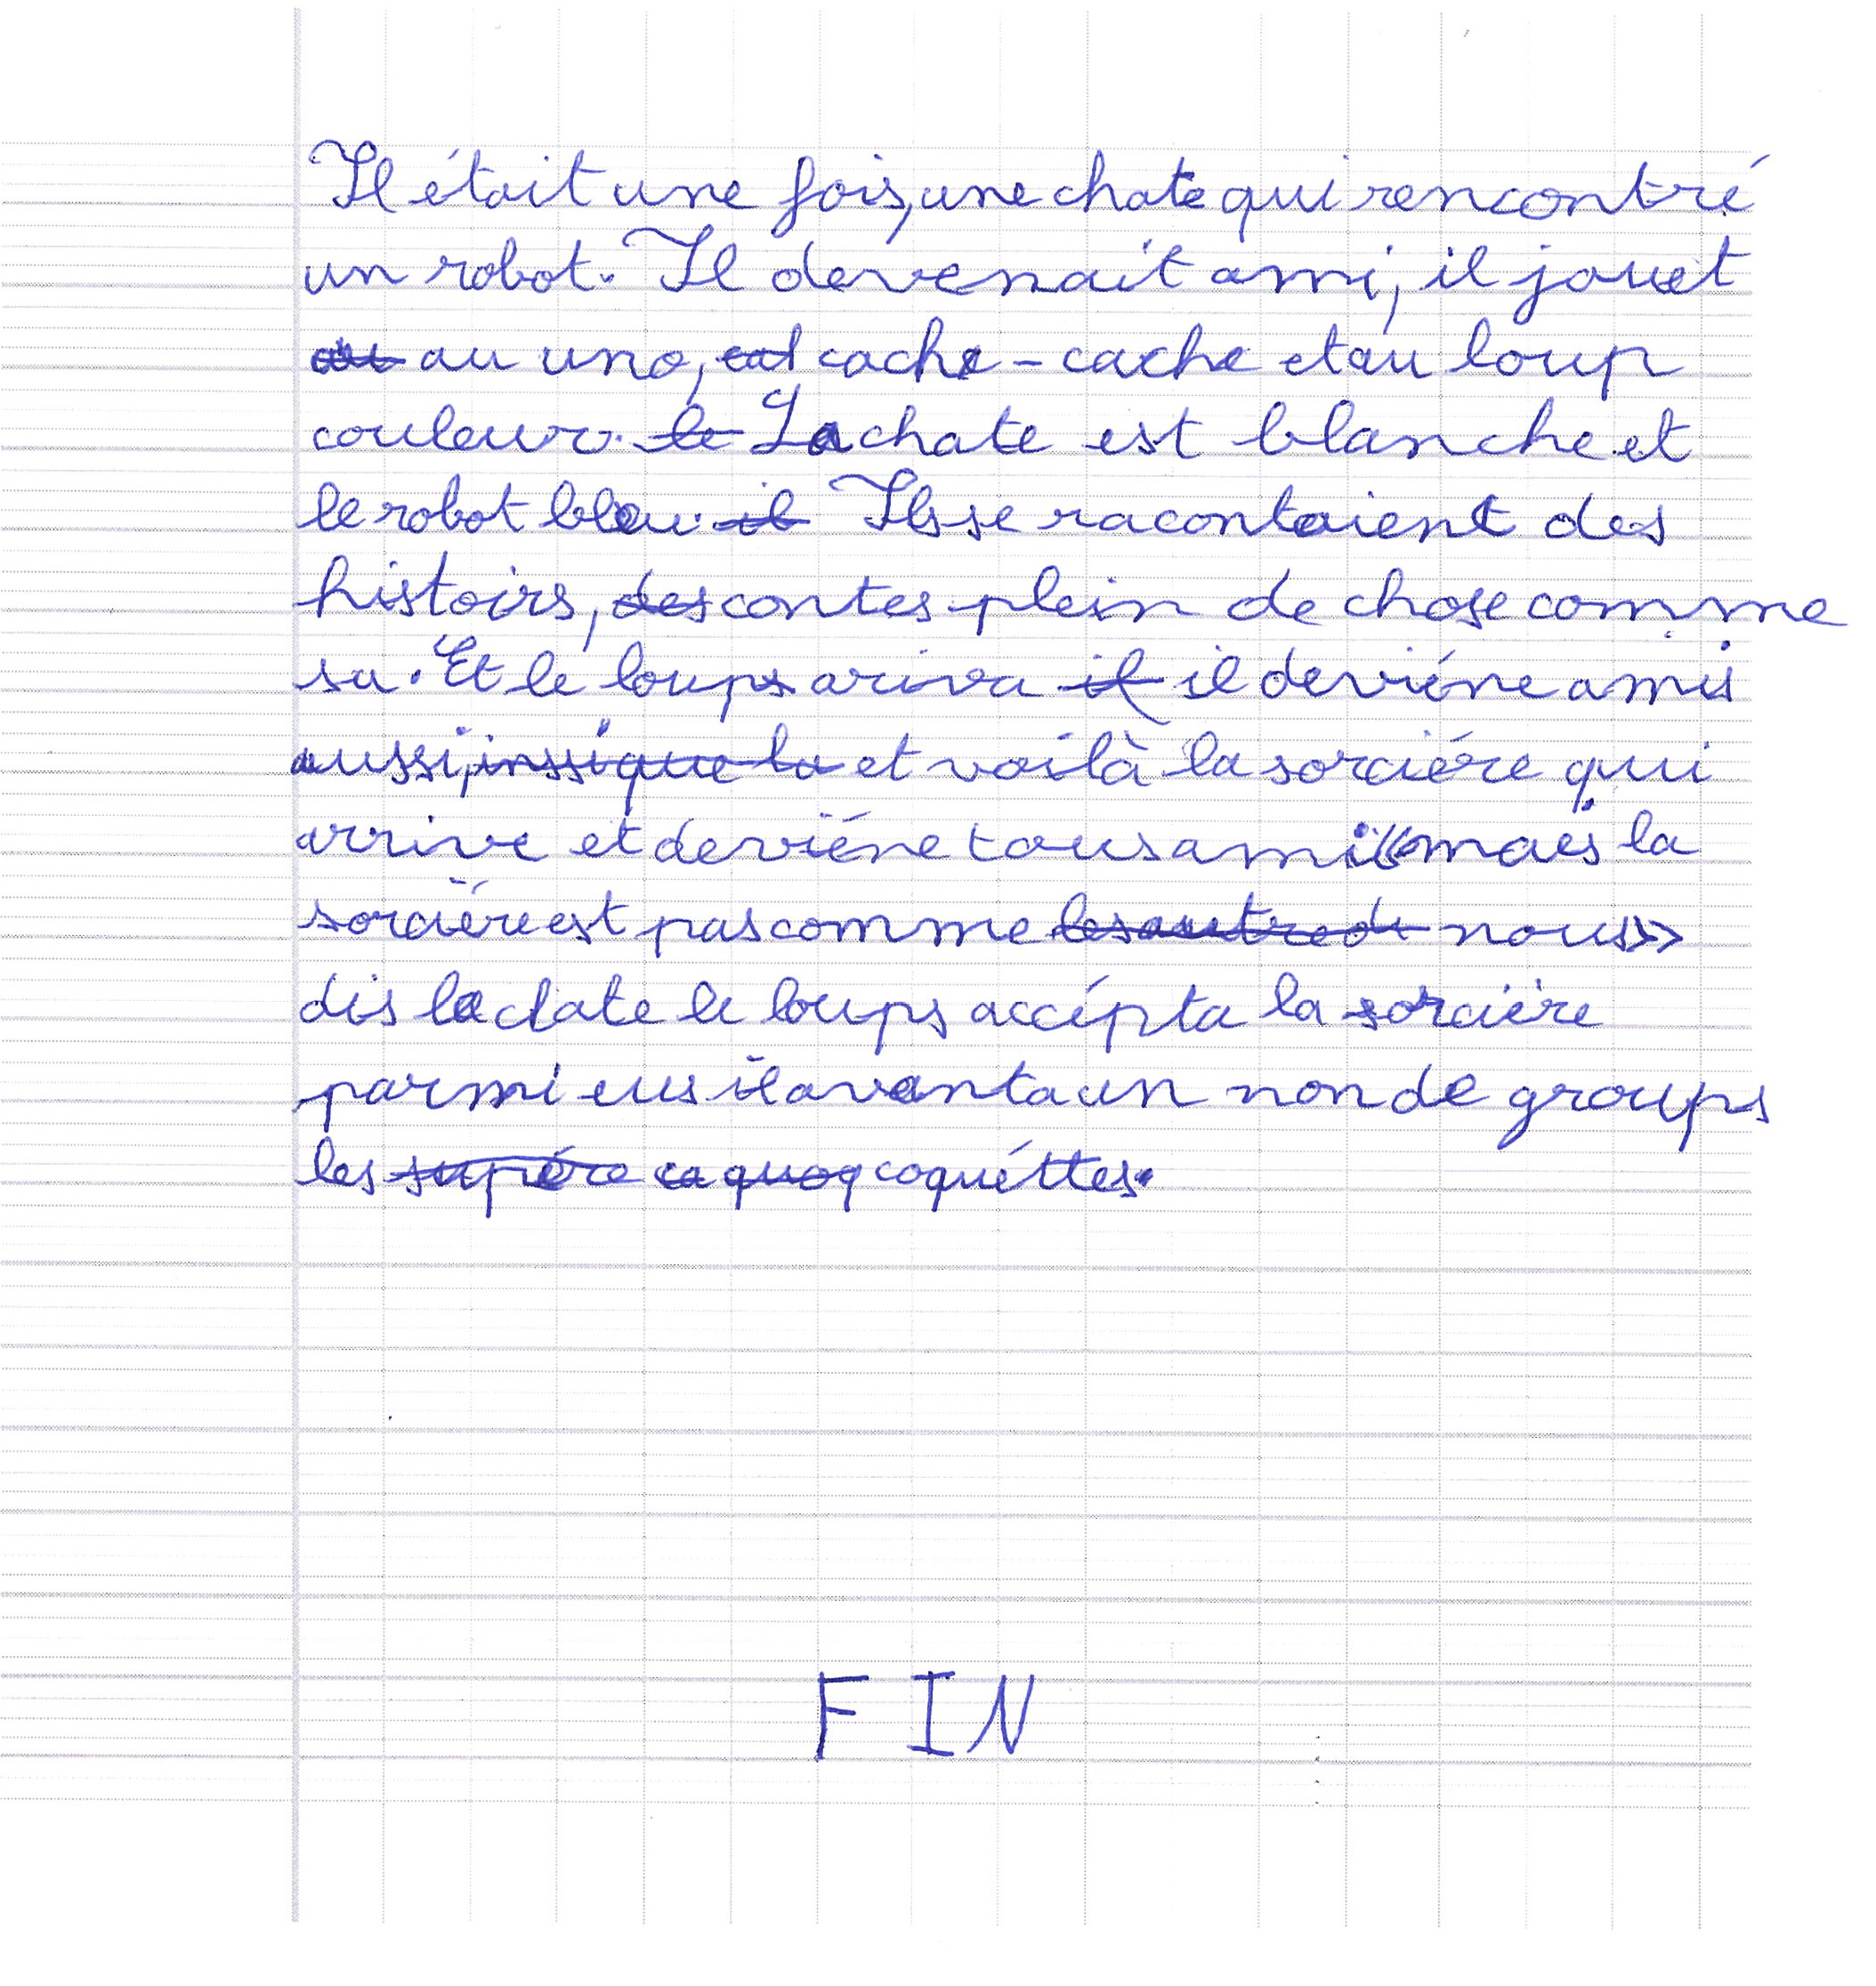 Il était une fois, une chate qui rencontré
un robot. Il devenait ami, il jouet
au au uno, cache-cache et au loup
couleur. le La chate est blanche et
le robot bleu. il Ils se racontaient des
histoirs, des contes plein de chose comme
sa. Et le loups ariva il il deviéne amis
aussi, et voilà la sorciére qui
arrive et deviéne tous ami «mais la
sorciére est pas comme les autre de nous»
dis la chate le loups accépta la sorcière
parmi eus il aventa un non de groups
les supére coquéttes.
FIN